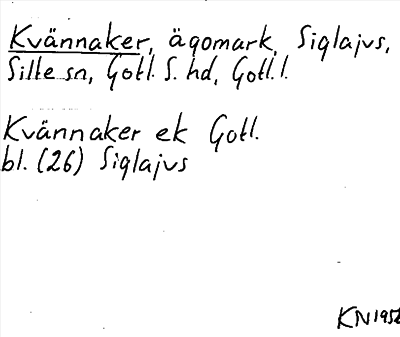 Kvännaker, ägomark, Siglajvs,
Silte sn, Gotl. S. hd, Gotl. l.
Kvännaker ek Gotl.
bl. (26) Siglajvs